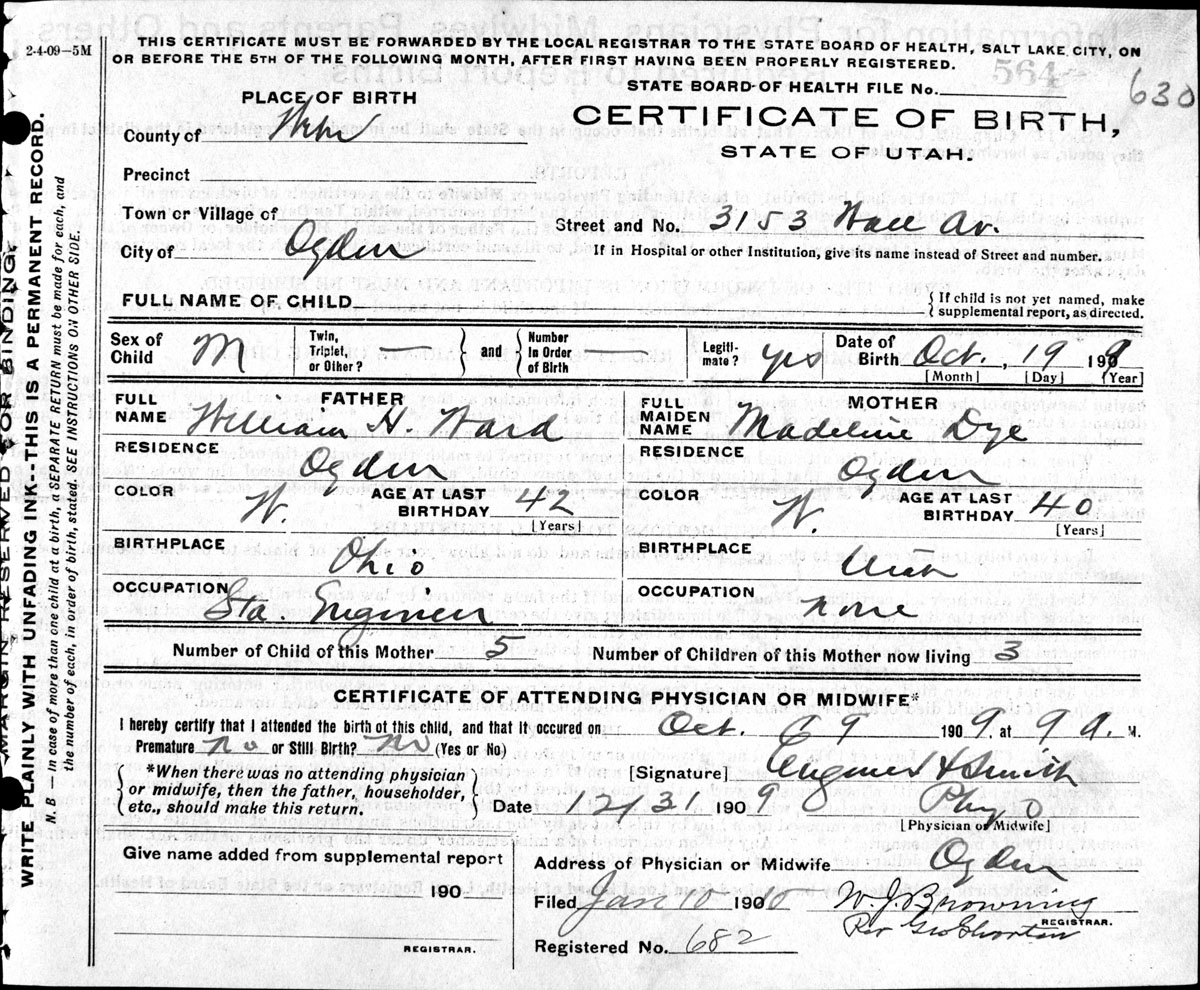 2-4-09—5M
THIS CERTIFICATE MUST BE FORWARDED BY THE LOCAL REGISTRAR TO THE STATE BOARD OF HEALTH, SALT LAKE CITY, ON
OR BEFORE THE 5TH OF THE FOLLOWING MONTH, AFTER FIRST HAVING BEEN PROPERLY REGISTERED.
564
STATE BOARD OF HEALTH FILE No. 630
PLACE OF BIRTH
CERTIFICATE OF BIRTH,
STATE OF UTAH.
County of Weber
Precinct
Town or Village of
Street and No. 3153 Wall Av.
City of Ogden
If in Hospital or other Institution, give its name instead of Street and number.
FULL NAME OF CHILD
{ If child is not yet named, make supplemental report, as directed.
Sex of Child M Twin, Triplet, or Other? — } and { Number In Order of Birth Legiti- mate? yes Date of Birth Oct. , 19 1909
[Month] [Day] [Year]
FATHER MOTHER
FULL NAME William H. Ward FULL MAIDEN NAME Madeline Dye
RESIDENCE Ogden RESIDENCE Ogden
COLOR W. AGE AT LAST BIRTHDAY 42 [Years] COLOR W. AGE AT LAST BIRTHDAY 40 [Years]
BIRTHPLACE Ohio BIRTHPLACE Utah
OCCUPATION Sta. Engineer OCCUPATION none
Number of Child of this Mother 5 Number of Children of this Mother now living 3
CERTIFICATE OF ATTENDING PHYSICIAN OR MIDWIFE*
I hereby certify that I attended the birth of this child, and that it occured on Oct. 19 1909, at 9 A. M.
Premature no or Still Birth? no (Yes or No)
{ *When there was no attending physician or midwife, then the father, householder, etc., should make this return. }
[Signature] H Smith
Date 12/31 1909
[Physician or Midwife]
Give name added from supplemental report
190
REGISTRAR.
Address of Physician or Midwife Ogden
Filed Jan 10 1910 W. J. Browning
REGISTRAR.
Per Geo Shorten
Registered No. 682
MARGIN RESERVED FOR BINDING.
WRITE PLAINLY WITH UNFADING INK--THIS IS A PERMANENT RECORD.
N. B — in case of more than one child at a birth, a SEPARATE RETURN must be made for each, and
the number of each, in order of birth, stated. SEE INSTRUCTIONS ON OTHER SIDE.